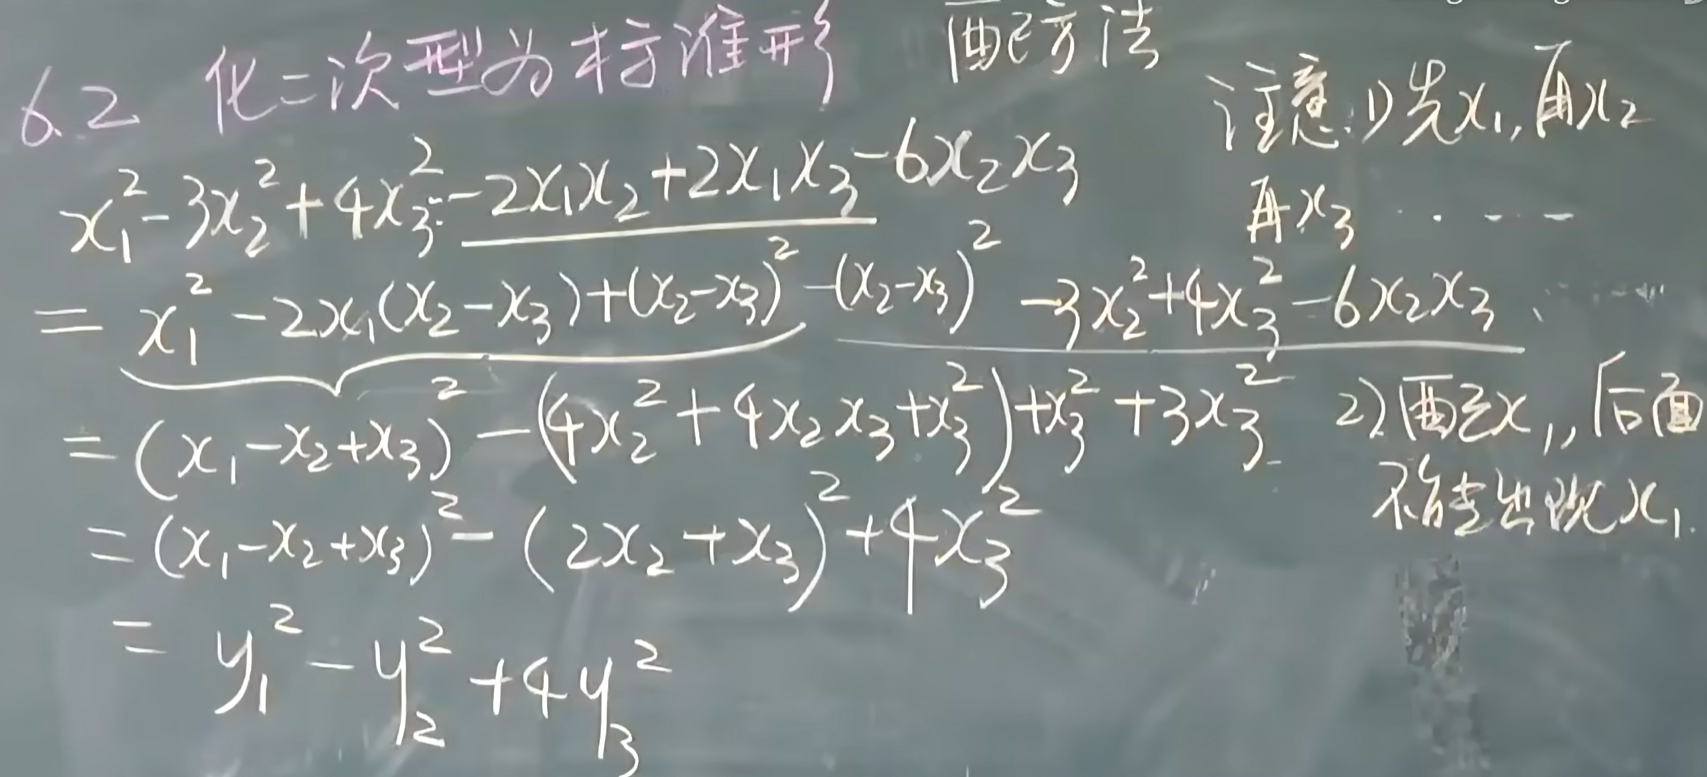 6.2 化二次型为标准形 配方法
注意:1)先x₁,再x₂
再x₃ ······
x₁²-3x₂²+4x₃²-2x₁x₂+2x₁x₃-6x₂x₃
=x₁²-2x₁(x₂-x₃)+(x₂-x₃)²-(x₂-x₃)²-3x₂²+4x₃²-6x₂x₃
=(x₁-x₂+x₃)²-(4x₂²+4x₂x₃+x₃²)+x₃²+3x₃²
2)配完x₁,后面
不能出现x₁.
=(x₁-x₂+x₃)²-(2x₂+x₃)²+4x₃²
=y₁²-y₂²+4y₃²